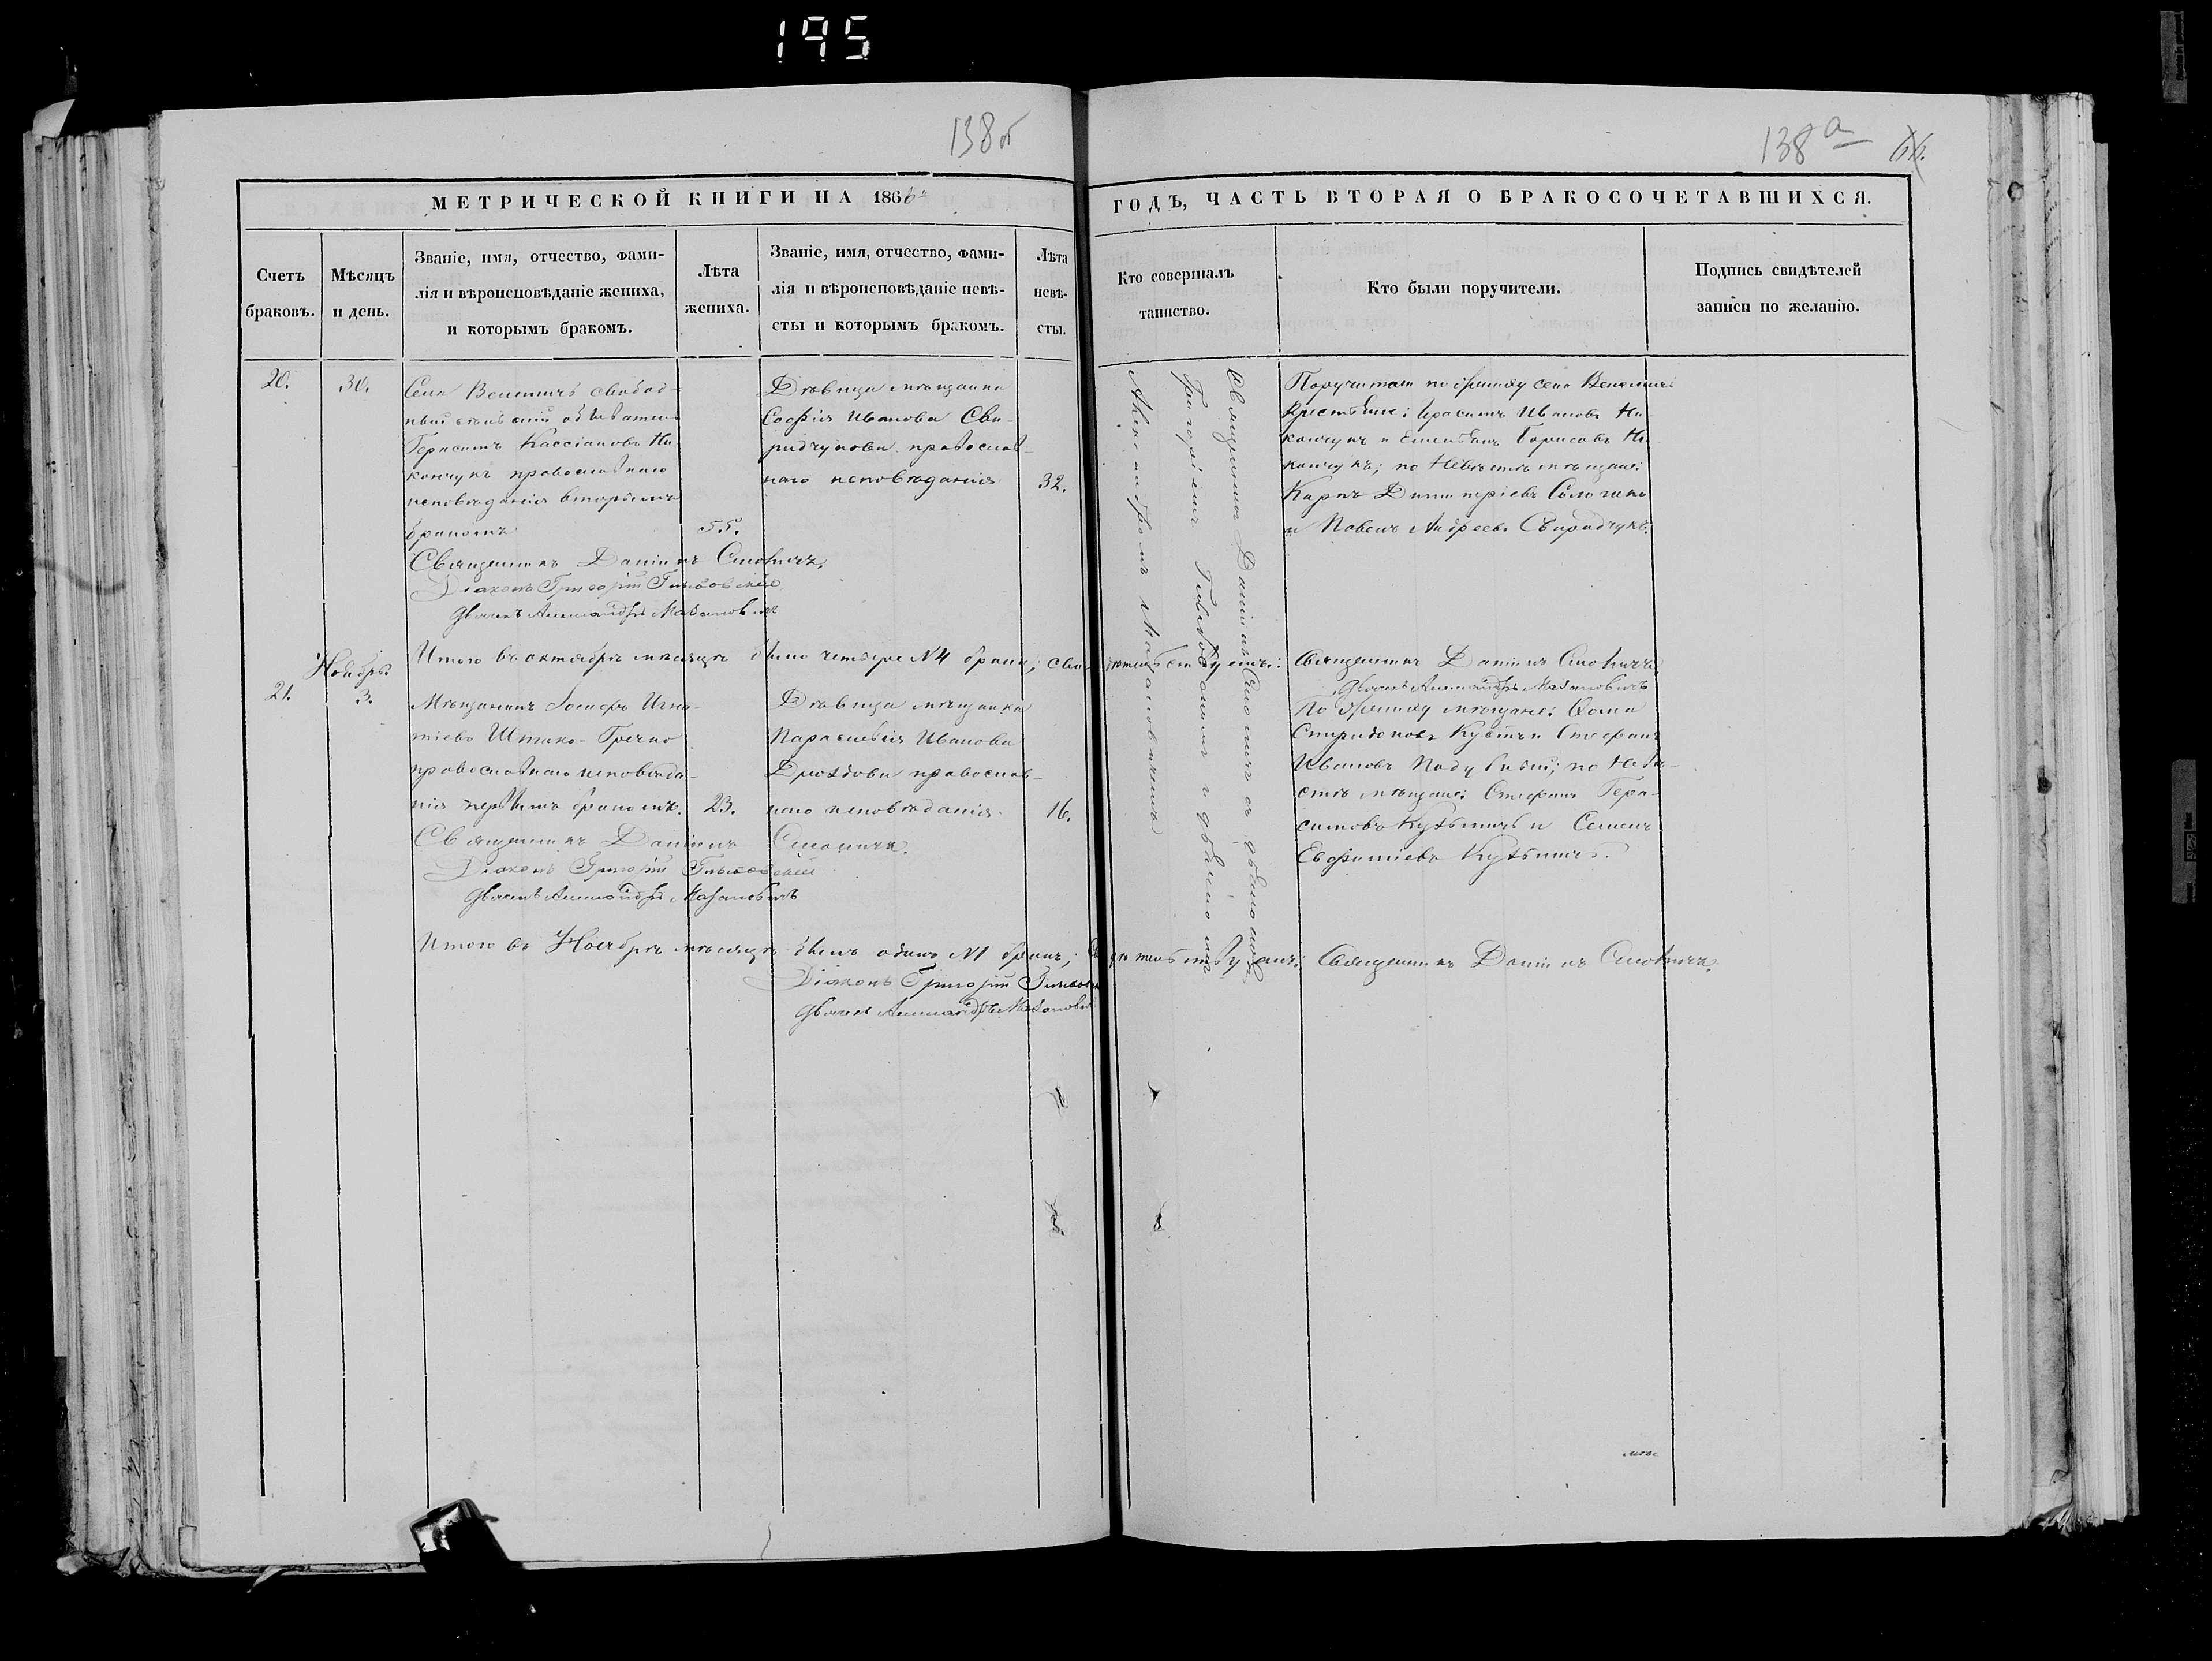 195
138об
138а
66.
МЕТРИЧЕСКОЙ КНИГИ НА 1866й
ГОДЪ, ЧАСТЬ ВТОРАЯ О БРАКОСОЧЕТАВШИХСЯ.
Счетъ
браковъ.
Мѣсяцъ
и день.
Званіе, имя, отчество, фами-
лія и вѣроисповѣданіе жениха,
и которымъ бракомъ.
Лѣта
жениха.
Званіе, имя, отчество, фами-
лія и вѣроисповѣданіе невѣ-
сты и которымъ бракомъ.
Лѣта
невѣ-
сты.
Кто совершалъ
таинство.
Кто были поручители.
Подпись свидѣтелей
записи по желанію.
20.
30.
Села свобод-
ный
Герасимъ Кассіановъ Ни-
кончукъ православнаго
исповѣданія вторымъ
бракомъ
55.
Дѣвица мѣщанка
Софія Иванова Сви-
ридчукова православ-
наго исповѣданія
32.
Священникъ Даніилъ Смоличъ съ
Григоріемъ и
Александромъ
Поручители по жениху села
Крестьяне: Герасимъ Ивановъ Ни-
кончукъ и Емельянъ Борисовъ Ни-
кончукъ; по Невѣстѣ мѣщане:
Карпъ Димитріевъ
и Павелъ Андреевъ Свиридчукъ.
Священникъ Даніилъ Смоличъ.
Діаконъ Григорій
Дьячекъ Александръ
Итого въ октябрѣ мѣсяцѣ было четыре №4 брака; сви-
дѣтельствуютъ: Священникъ Даніилъ Смоличъ
Дьячекъ Александръ
Ноябрь.
21.
3.
Мѣщанинъ Іосифъ Игна-
тіевъ Шпако-Гречко
православнаго исповѣда-
нія первымъ бракомъ.
23.
Дѣвица мѣщанка
Параскевія Иванова
Дроздова православ-
наго исповѣданія
16.
По жениху мѣщане: Фома
Спиридоновъ и Стефанъ
Ивановъ по Невѣ-
стѣ мѣщане: Стефанъ Гера-
симовъ Кузьмичъ и Семенъ
Евфиміевъ Кузьмичъ.
Священникъ Даніилъ Смоличъ.
Діаконъ Григорій
Дьячекъ Александръ
Итого въ Ноябрѣ мѣсяцѣ былъ одинъ №1 бракъ; сви-
дѣтельствуютъ: Священникъ Даніилъ Смоличъ.
Діаконъ Григорій
Дьячекъ Александръ